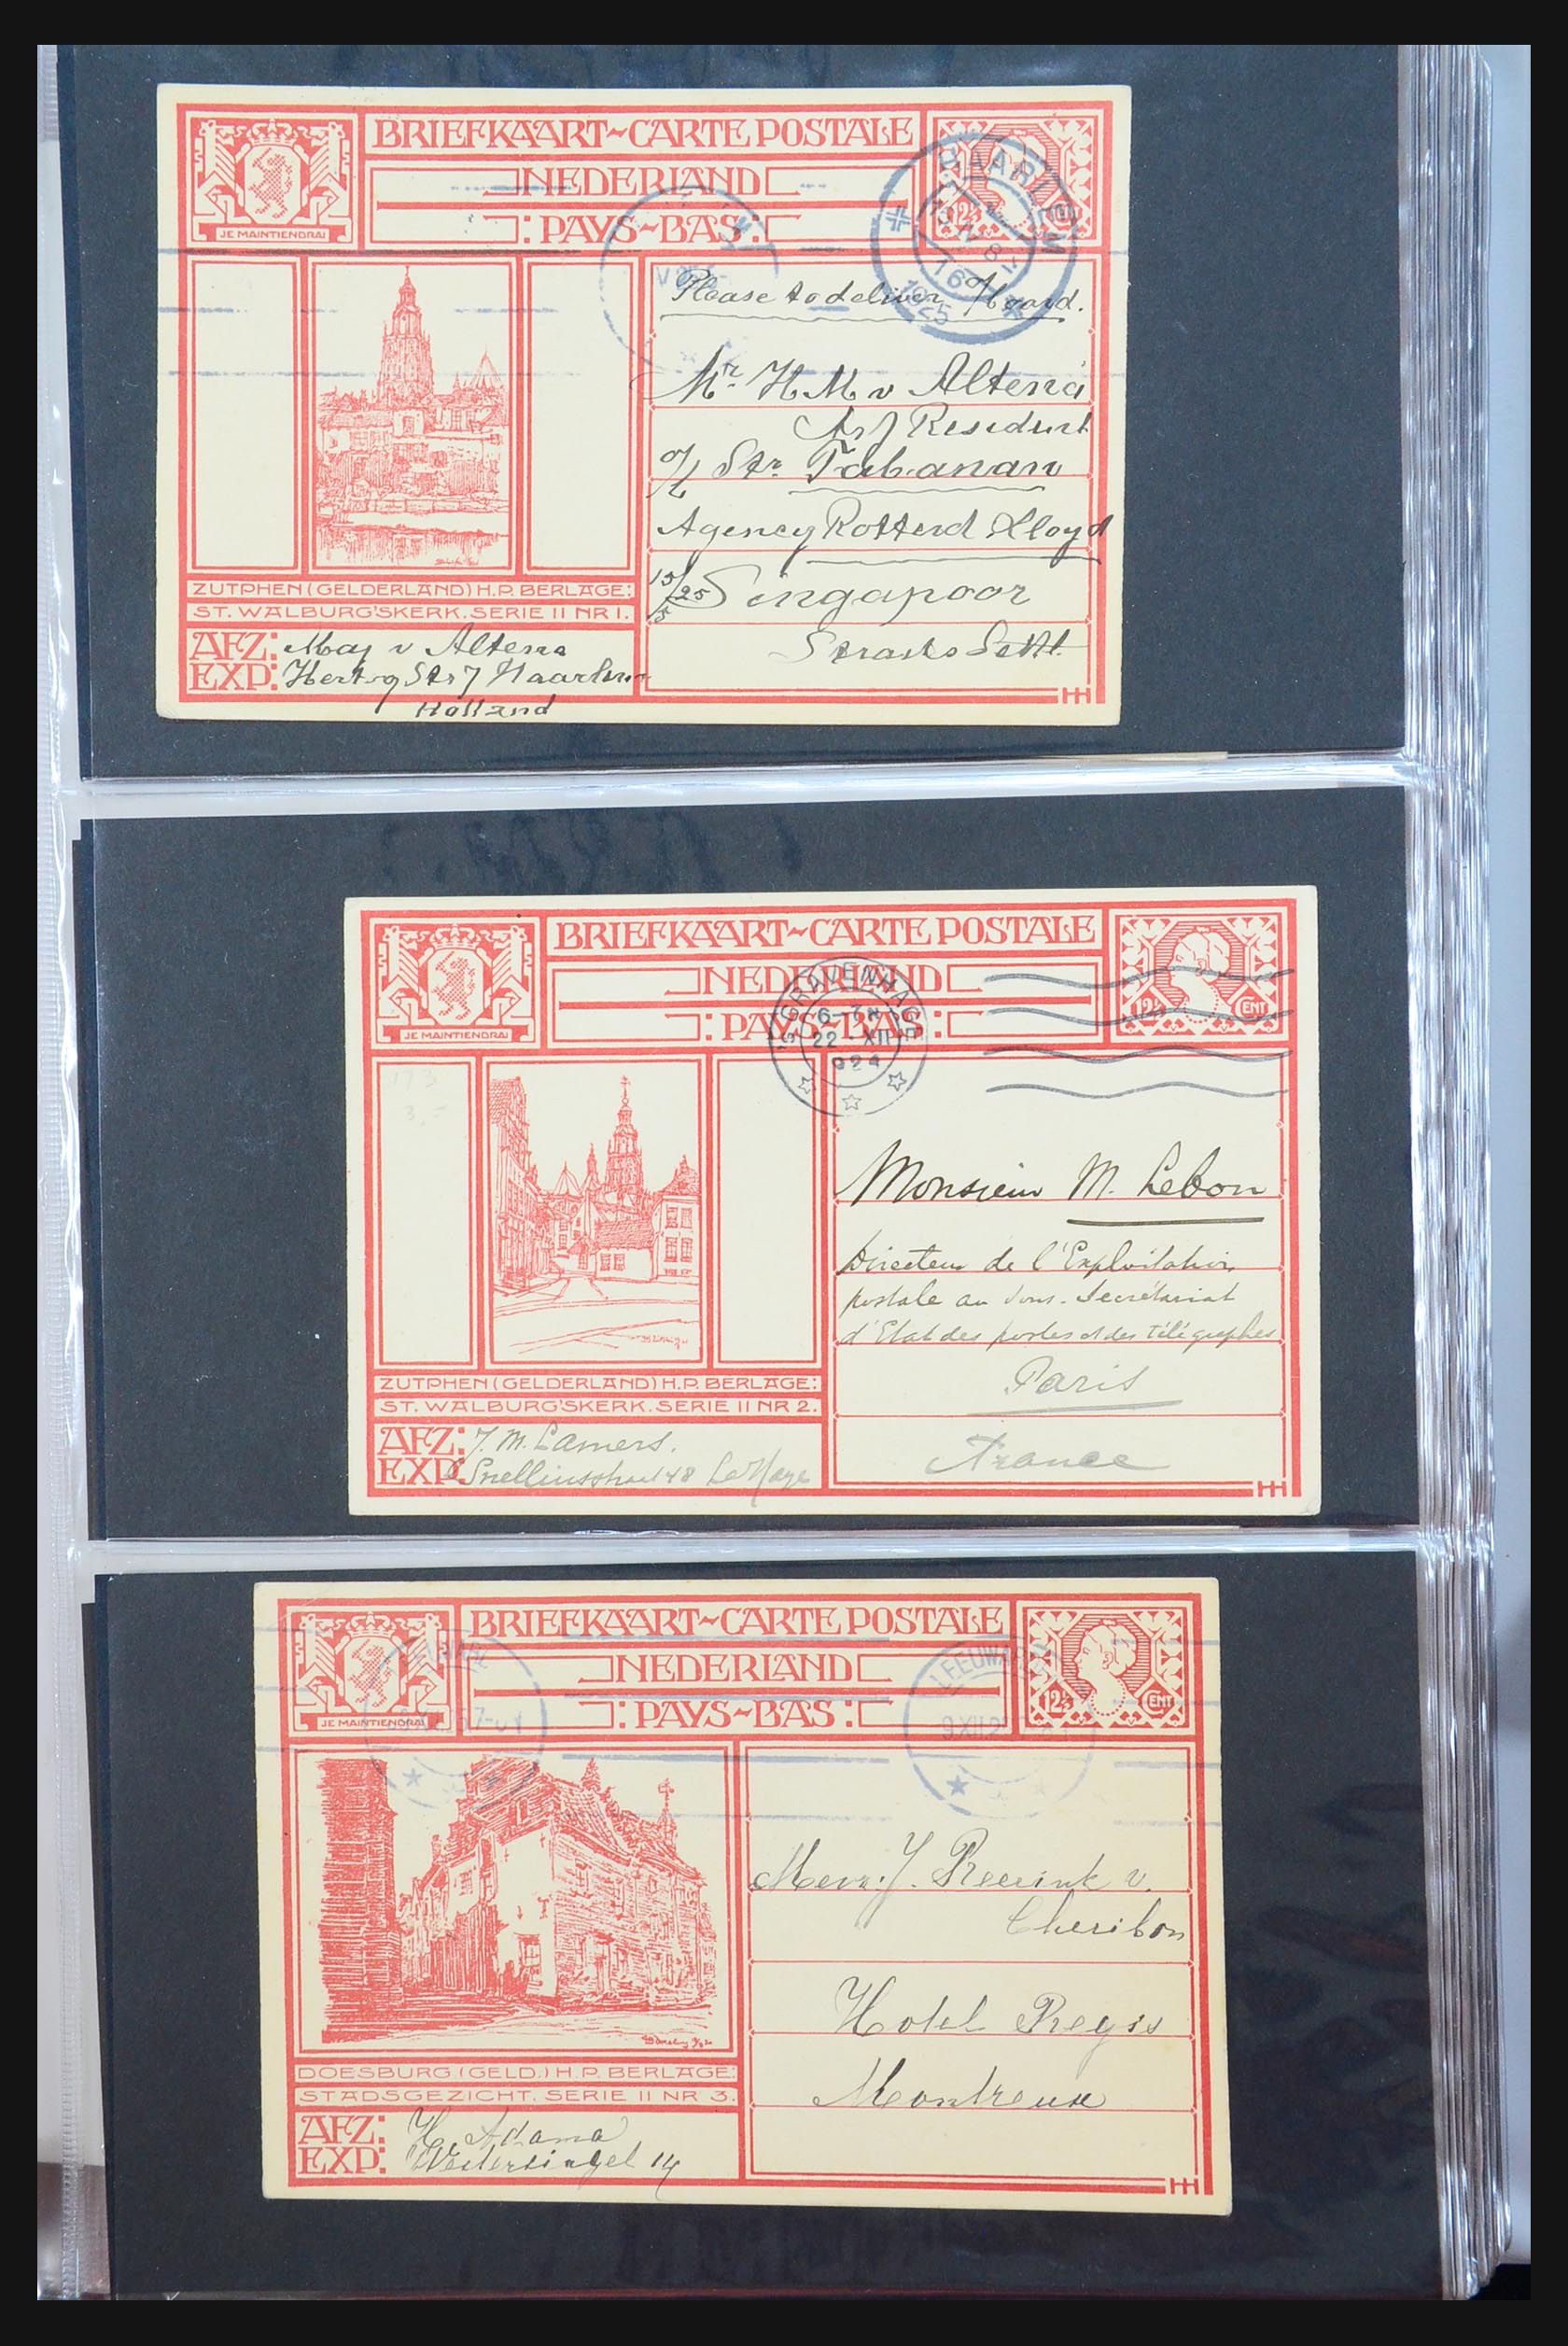 BRIEFKAART~CARTE POSTALE
NEDERLAND
:PAYS~BAS:
JE MAINTIENDRAI
12½ CENT
HAARLEM
1925
Please to deliver
Mr. H M v Altena
Resident
Str. Tabanan
Agency Rotterd Lloyd
Singapoor
Straits Settl.
ZUTPHEN (GELDERLAND) H.P. BERLAGE:
ST. WALBURG'SKERK. SERIE II NR 1.
AFZ: v Altena
EXP: Hertog Str 7 Haarlem
Holland
BRIEFKAART~CARTE POSTALE
NEDERLAND
:PAYS~BAS:
JE MAINTIENDRAI
12½ CENT
'S GRAVENHAGE
22 XII
1924
173
3,-
Monsieur M. Lebon
Directeur de l'Exploitation
postale au Sous-Secrétariat
d'Etat des postes et des télégraphes
Paris
France
ZUTPHEN (GELDERLAND) H.P. BERLAGE:
ST. WALBURG'SKERK. SERIE II NR 2.
AFZ: J. M. Lamers.
EXP: Snelliusstraat 48 La Haye
BRIEFKAART~CARTE POSTALE
NEDERLAND
:PAYS~BAS:
JE MAINTIENDRAI
12½ CENT
LEEUWARD
9 XII 2
Mevr. J. Reerink v.
Cheribon
Hotel Regis
Montreux
DOESBURG (GELD.) H.P. BERLAGE:
STADSGEZICHT. SERIE II NR 3.
AFZ: H Adama
EXP: Westersingel 14